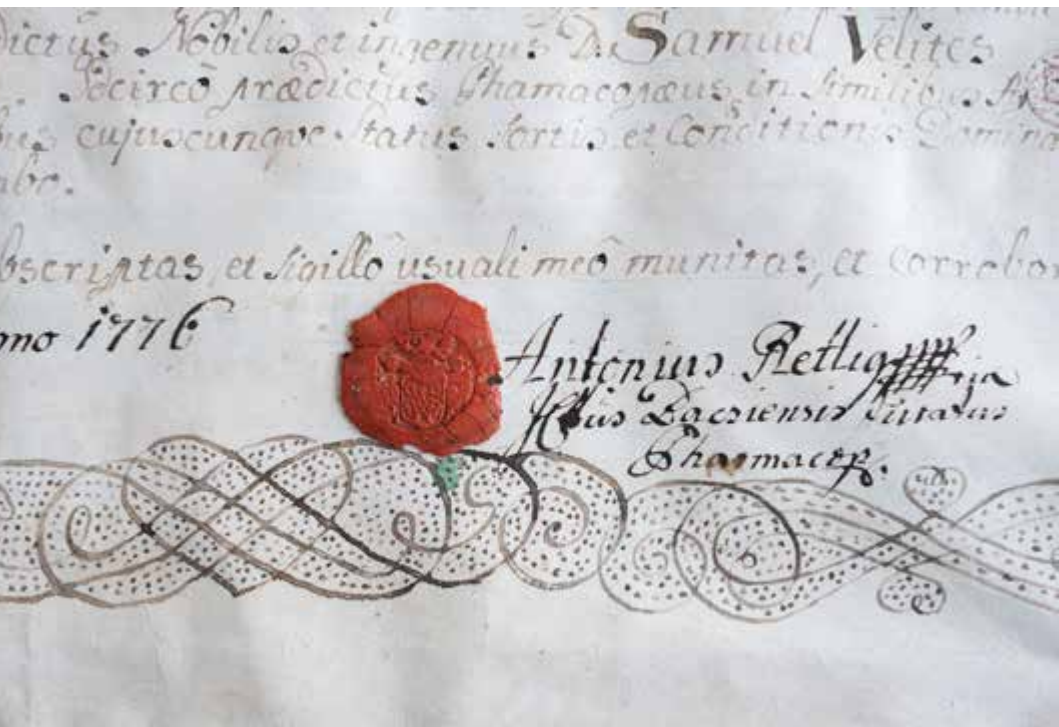 dictus Nobilis et ingenuus D. Samuel Velites
Idcircò prædictus Phamacopæus, in similibus
bus cujuscunque Status Sortis et Conditionis Domina
abo.
bscriptas, et sigillô usuali meô munitas, et corrobor
nno 1776
Antonius Rettig
Pharmacop.